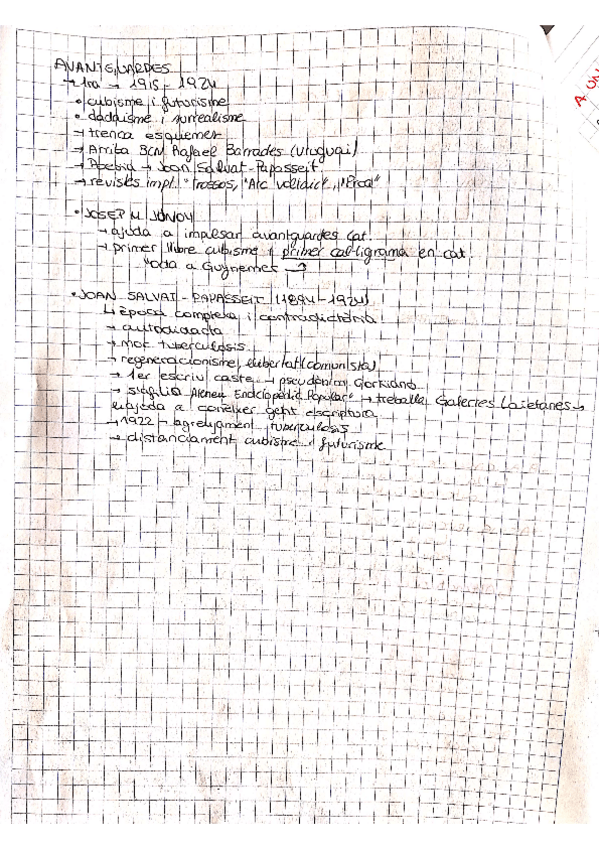 AVANTGUARDES
→ 1ra → 1915 - 1924
• cubisme i futurisme
• dadaisme i surrealisme
→ trenca esquemes
→ Arriba BCN Rafael Barrades (Uruguai)
→ Joan Salvat-Papasseit.
→ revistes impl. "Trossos,
• JOSEP M JUNOY
→ ajuda a impulsar avantguardes cat
→ primer llibre cubisme i primer cal·ligrama en cat.
"Oda a Guynemer
• JOAN SALVAT - PAPASSEIT (1894 - 1924)
↳ època complexa i contradictòria
→ autodidacta
→ mor tuberculosis
→ regeneracionisme, llibertat (comunista)
→ 1er escriu caste. → pseudònim Gorkiano
→ s'afilia Ateneu Enciclopèdic Popular" → treballa Galeries Laietanes →
ajuda a conèixer gent escriptura
→ 1922 → agreujament tuberculosis
→ distanciament cubisme i futurisme
A UN